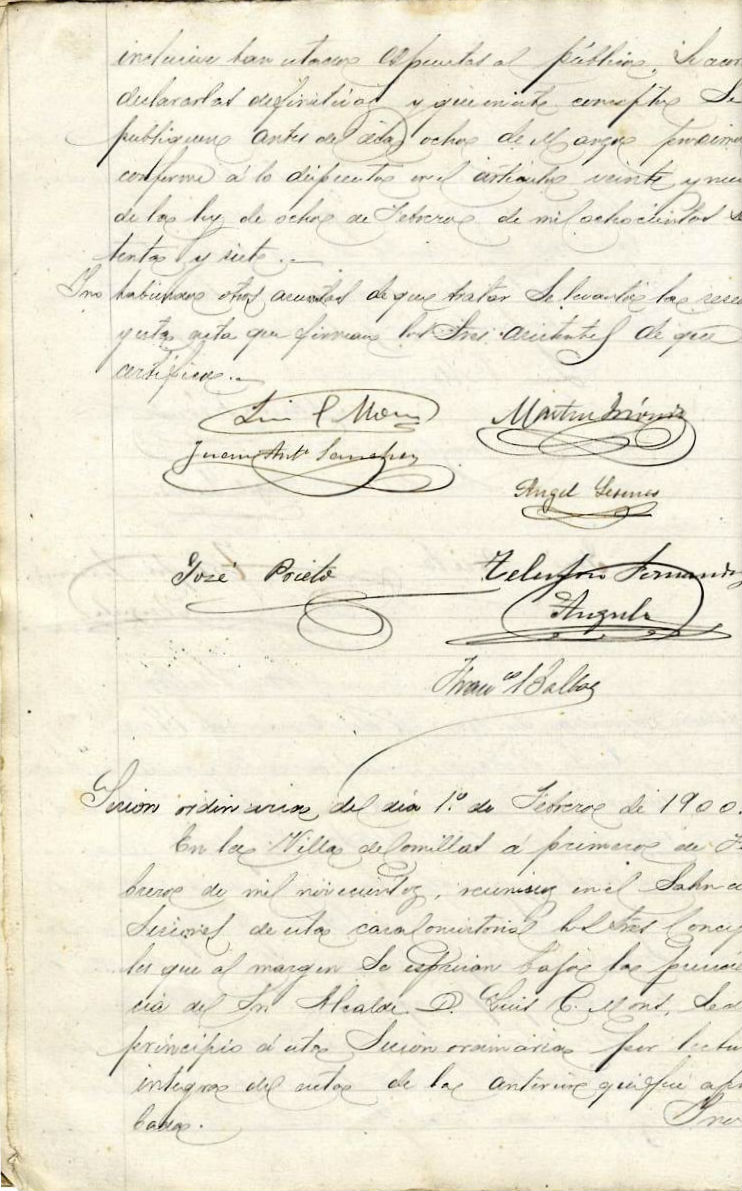 inclusive han estado espuestas al público. Se acor
declararlas definitivas y que en este concepto se
publiquen antes del dia ocho de Marzo proximo
conforme á lo dispuesto en el artículo veinte y nue
de la ley de ocho de Febrero de mil ochocientos se
tenta y siete.
Y no habiendo otros asuntos de que tratar se levantó la sesio
y esta acta que firman los Sres. asistentes de que
certifico.
Luis C Mons Martin
Juan Antº Sanchez
Angel
José Prieto Telesforo Fernandez
Angulo
Francco Balbas
Sesion ordinaria del dia 1.º de Febrero de 1900.
En la Villa de Comillas á primero de Fe
brero de mil novecientos, reunidos en el Salon de
Sesiones de esta casa Consistorial los Sres Conceja
les que al margen se espresan bajo la presiden
cia del Sr. Alcalde D. Luis C. Mons, se dió
principio á esta Sesion ordinaria por lectu
integra del acta de la anterior que fué apro
bada.